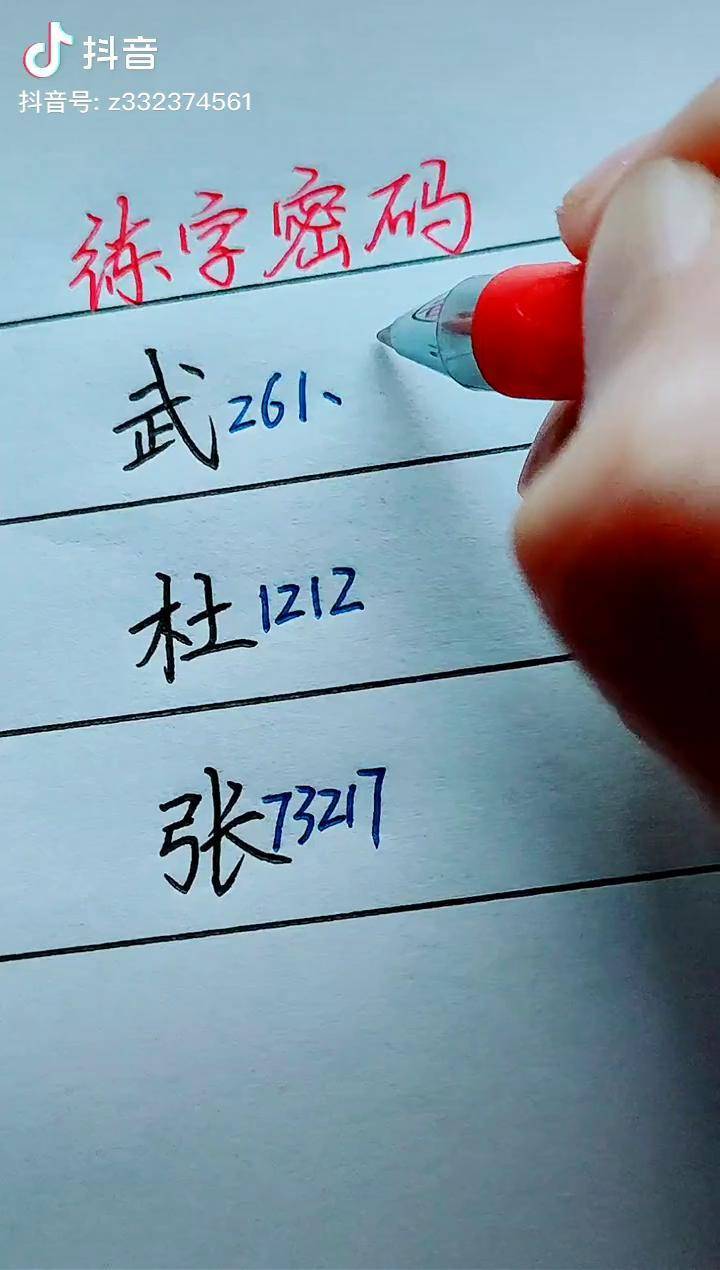 抖音
抖音号: z332374561
练字密码
武261、
杜1212
张73217